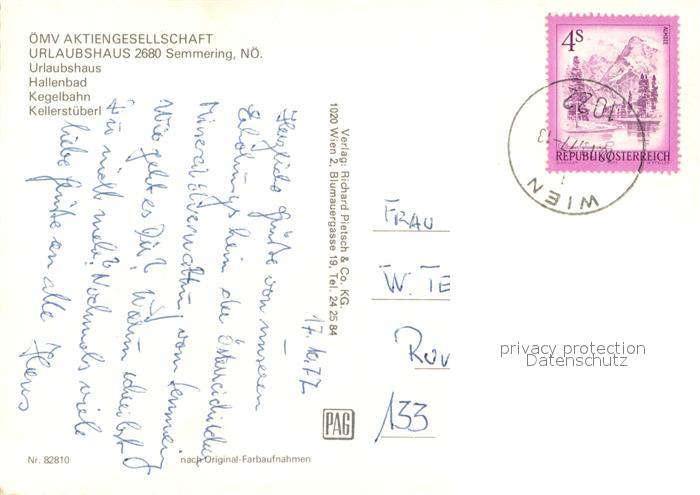 ÖMV AKTIENGESELLSCHAFT
URLAUBSHAUS 2680 Semmering, NÖ.
Urlaubshaus
Hallenbad
Kegelbahn
Kellerstüberl
17.10.77
Herzliche Grüße von unserem
Erholungsheim der Österreichischen
Mineralölverwaltung vom Semmering
Wie geht es Dir? Warum schreibst
Du nicht mehr? Nochmals viele
liebe Grüße an alle
Hans
Verlag: Richard Pietsch & Co. KG.
1020 Wien 2, Blumauergasse 19, Tel. 24 25 84
PAG
Nr. 82810
nach Original-Farbaufnahmen
4S
ALMSEE
REPUBLIK ÖSTERREICH
1022
WIEN
FRAU
W. TE
133
privacy protection
Datenschutz